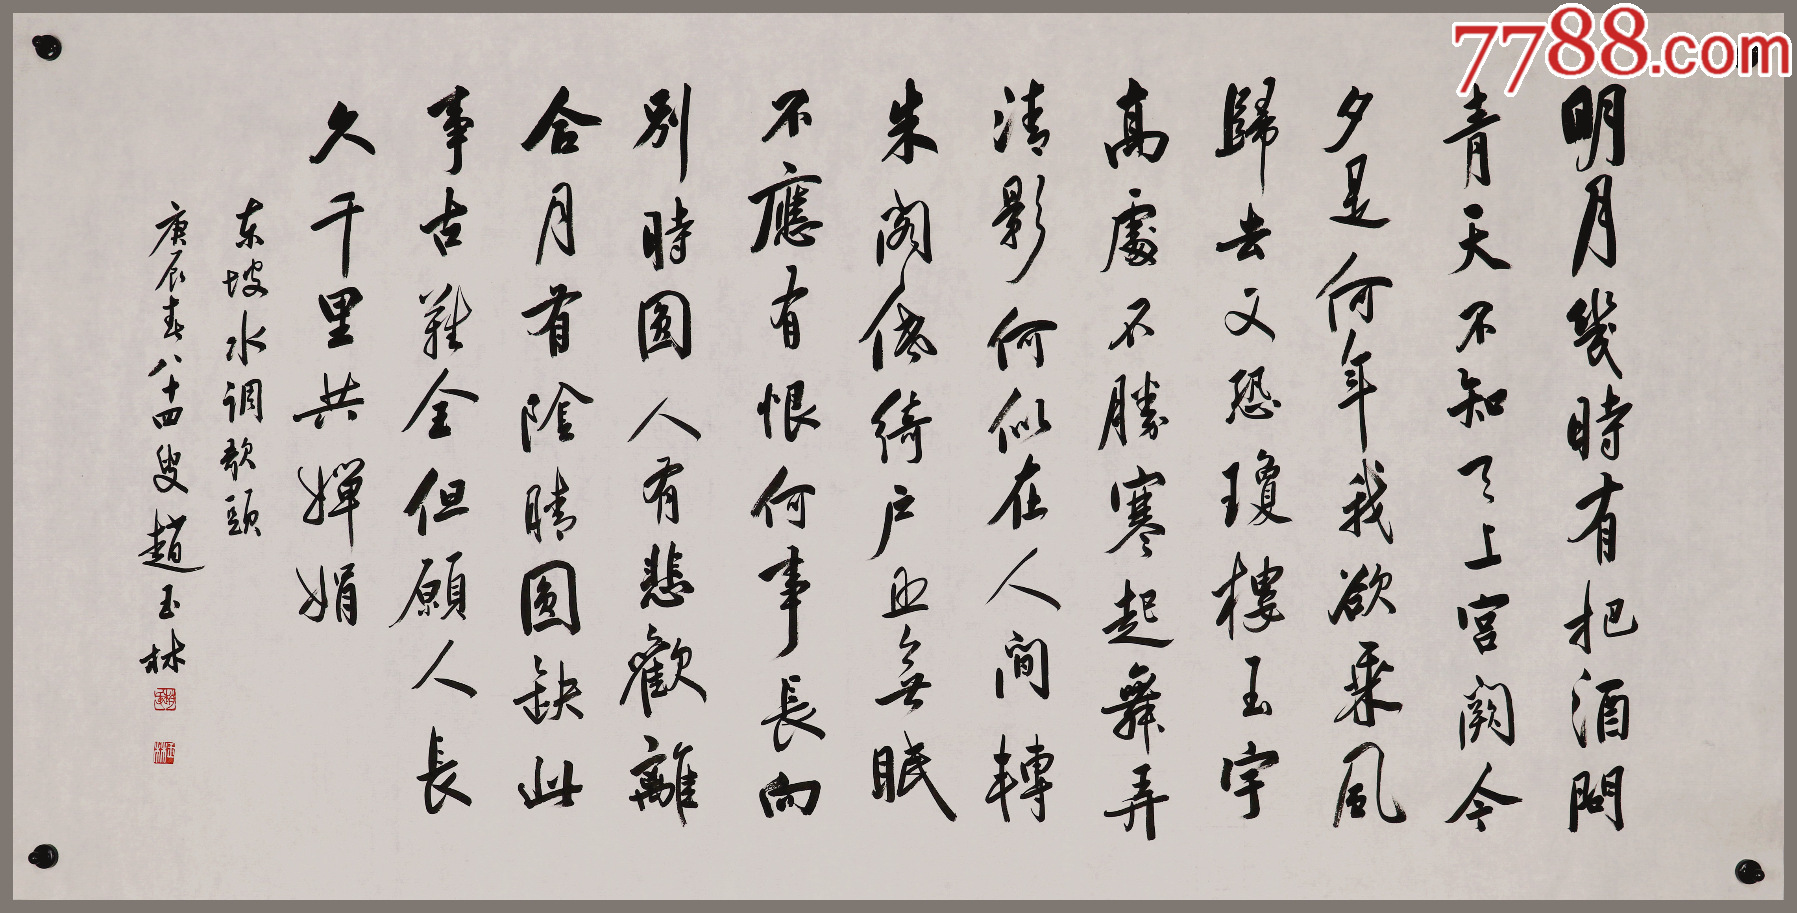 明月幾時有把酒問
青天不知天上宮闕今
夕是何年我欲乘風
歸去又恐瓊樓玉宇
高處不勝寒起舞弄
清影何似在人間轉
朱閣低綺户照無眠
不應有恨何事長向
別時圓人有悲歡離
合月有陰晴圓缺此
事古難全但願人長
久千里共嬋娟
东坡水调歌頭
庚辰春八十四叟趙玉林
7788.com